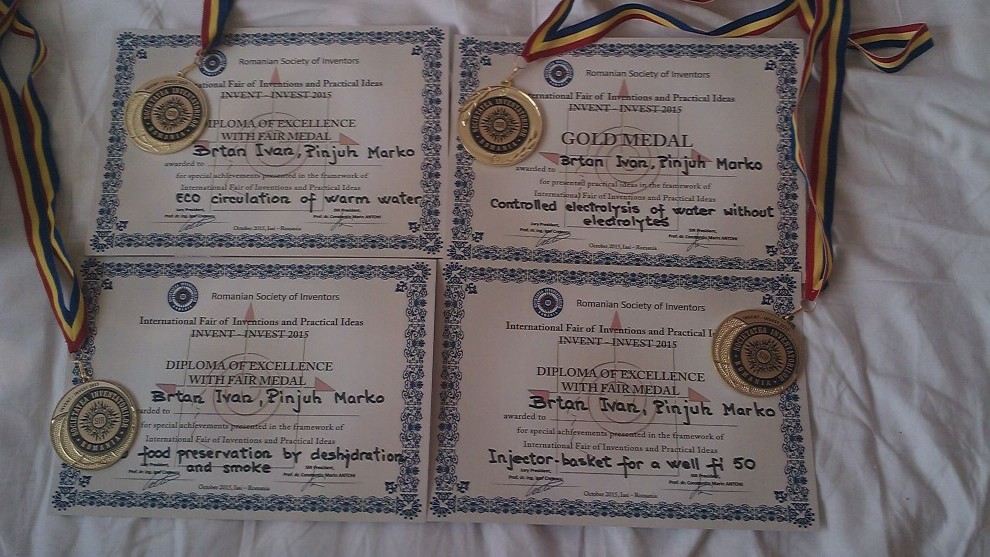 Romanian Society of Inventors
International Fair of Inventions and Practical Ideas
INVENT – INVEST 2015
DIPLOMA OF EXCELLENCE
WITH FAIR MEDAL
Brtan Ivan, Pinjuh Marko
awarded to
for special achievements presented in the framework of
International Fair of Inventions and Practical Ideas
ECO circulation of warm water
October 2015, Iasi - Romania
Romanian Society of Inventors
Fair of Inventions and Practical Ideas
INVENT – INVEST 2015
GOLD MEDAL
Brtan Ivan, Pinjuh Marko
awarded to
for presented practical ideas in the framework of
International Fair of Inventions and Practical Ideas
Controlled electrolysis of water without
electrolytes
October 2015, Iasi - Romania
Romanian Society of Inventors
International Fair of Inventions and Practical Ideas
INVENT – INVEST 2015
DIPLOMA OF EXCELLENCE
WITH FAIR MEDAL
Brtan Ivan, Pinjuh Marko
for special achievements presented in the framework of
International Fair of Inventions and Practical Ideas
food preservation by deshjdration
and smoke
October 2015, Iasi - Romania
Romanian Society of Inventors
International Fair of Inventions and Practical
INVENT – INVEST 2015
DIPLOMA OF EXCELLENCE
WITH FAIR MEDAL
Brtan Ivan, Pinjuh Marko
awarded to
for special achievements presented in the framework of
International Fair of Inventions and Practical Ideas
Injector-basket for a well fi 50
October 2015, Iasi - Romania